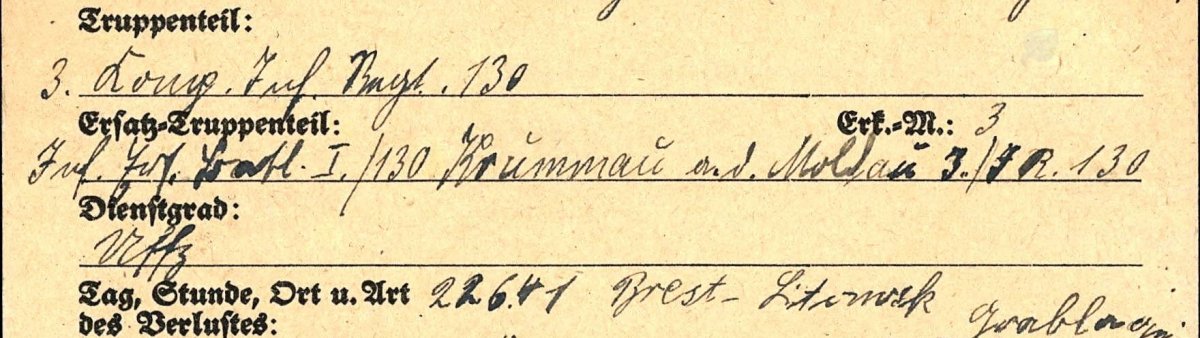 Truppenteil:
3. Komp. Inf. Regt. 130
Ersatz-Truppenteil: Erk.-M.: 3
Inf. Ers. Batl. I./130 Krummau a.d. Moldau 3./I R. 130
Dienstgrad:
Uffz
Tag, Stunde, Ort u. Art 22.6.41 Brest-Litowsk
des Verlustes: